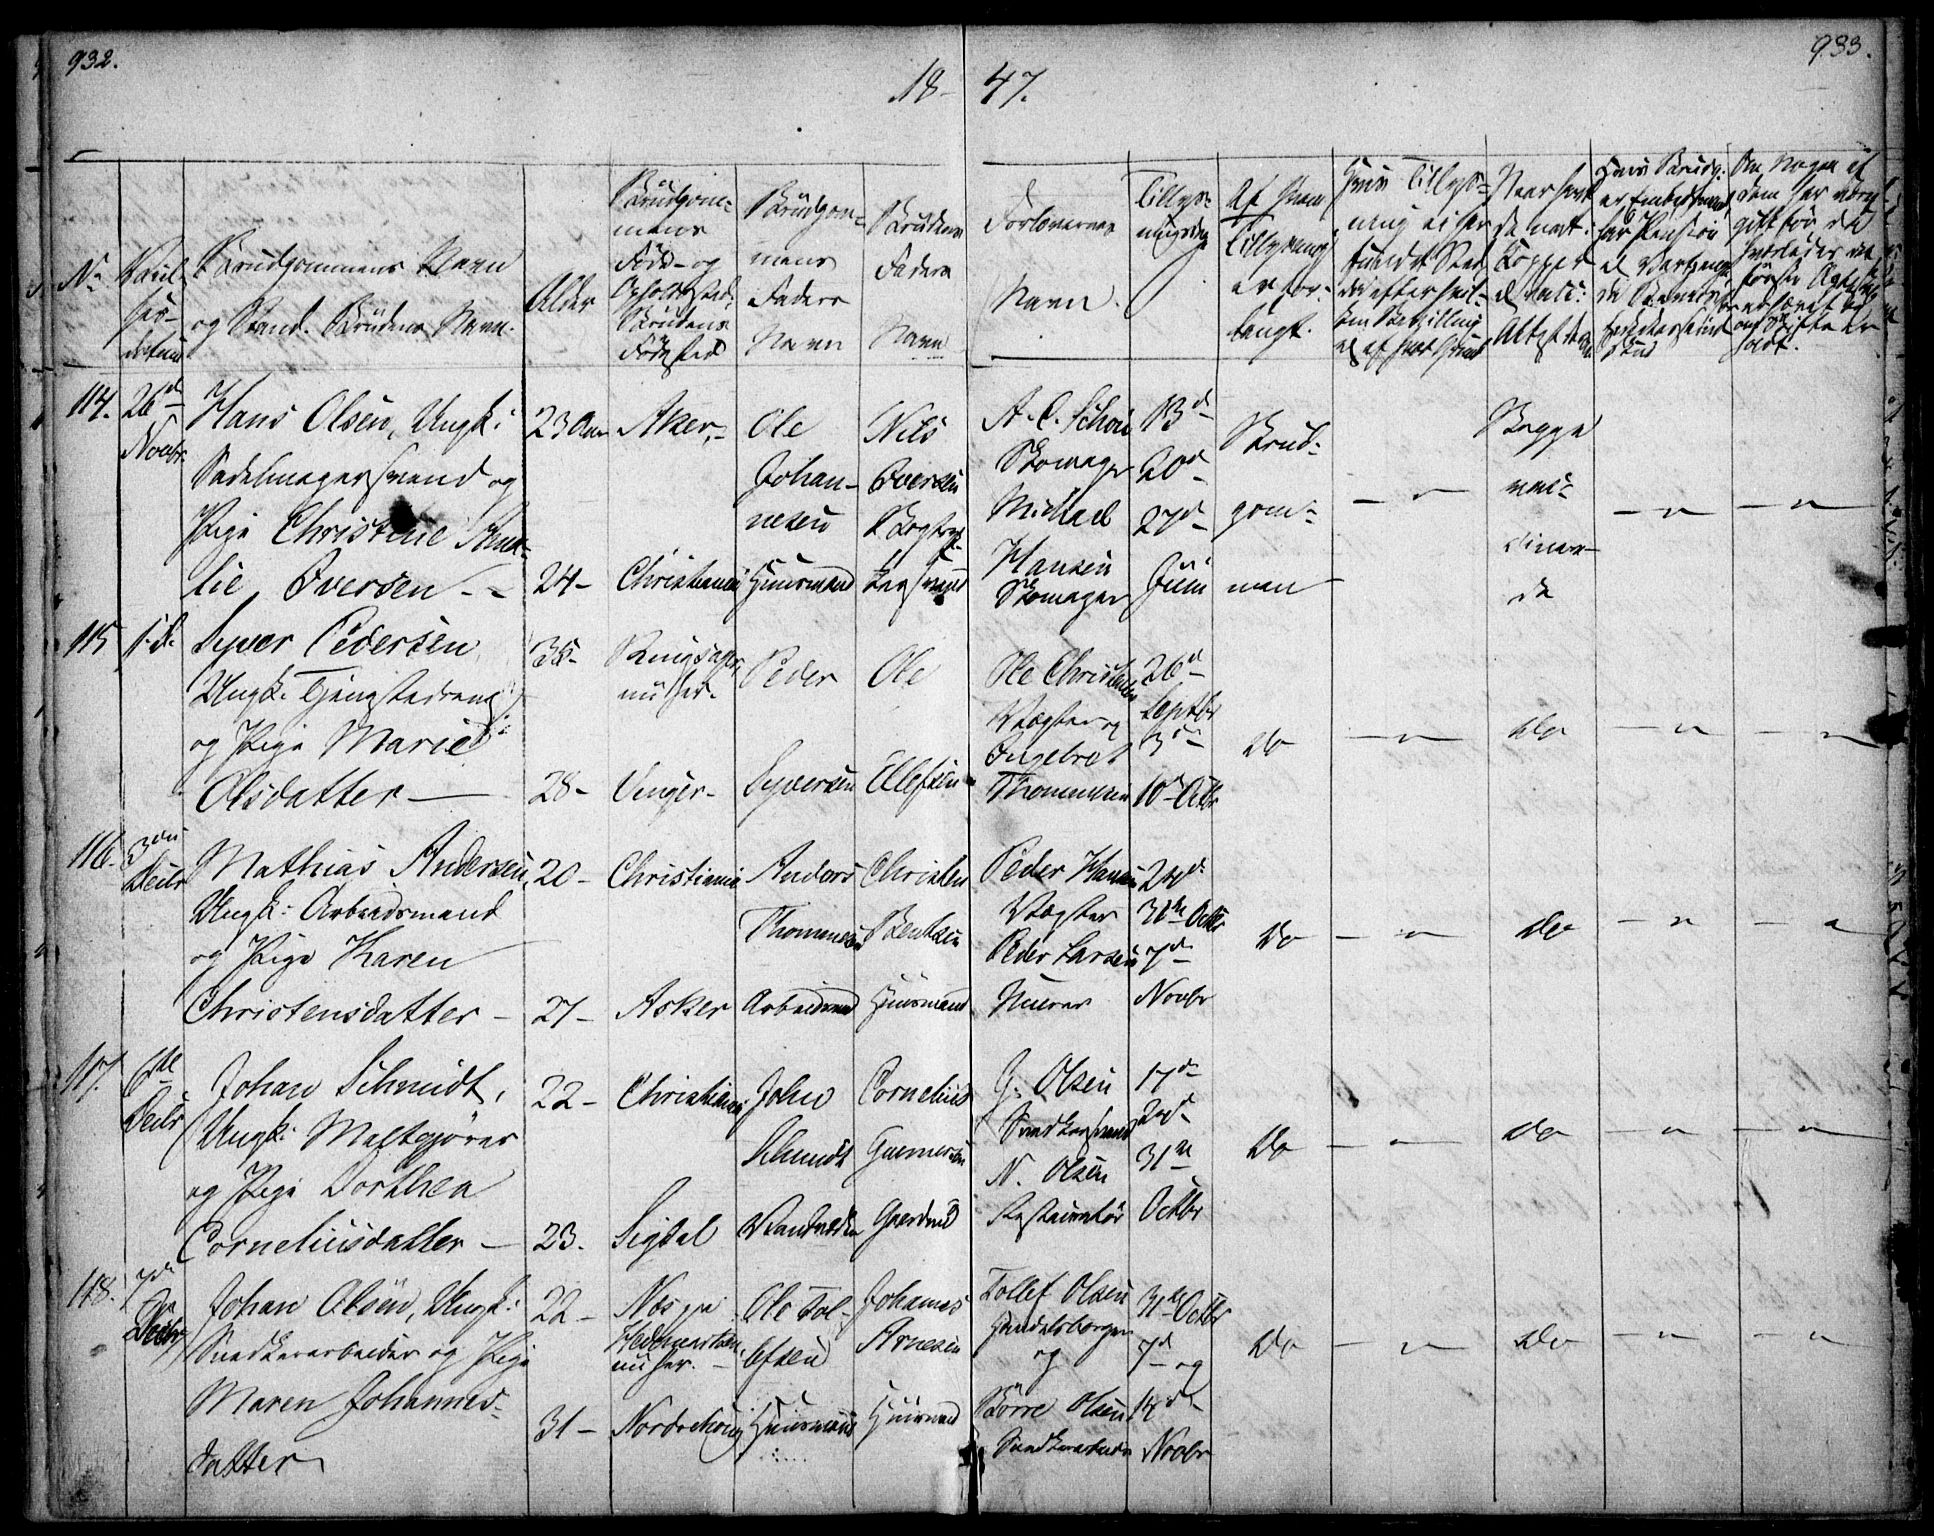 932.
933.
18- 47.
No
Brudgommens Navn
og Stand. Brudens Navn.
Alder
Brudgom-
mens
Føde- og
Opholdssted,
Brudens
Fødested
Brudgom-
mens
Faders
Navn
Brudens
Faders
Navn
Forlovernes
Navn.
Tillys-
ningsdag
Af Hvem
Tillysning
er for-
langt.
114. 26d Novbr
Hans Olsen, Ungk:
Sadelmagersvend og
Pige Christine Ama-
lie Oversen - -
23 Aar
24 -
Aker, -
Christiania
Ole
Johan-
nesen
Huusmand
Nils
Oversen
A. C.
Skomager
Michael
Hansen
Skomager
13d
20d
27d
Juni
Brud-
gom-
men
- " -
Begge
vacci-
nere-
de
- " -
- " -
115 s. D.
Syver Pedersen
Ungk. Tjenestedreng
og Pige Marie
Olsdatter -
35 -
28 -
Ringsager,
nu her.
Vinger -
Peder
Syversen
Ole
Ellefsen
Ole Christensen
Vægter og
Ingebret
Thommesen
26d
Septbr
3d
10d Octbr
Do
- " -
Do
- " -
- " -
116. 3die Decbr
Mathias Andersen,
Ungk: Arbeidsmand
og Pige Karen
Christensdatter -
20 -
27 -
Christiania
Asker
Anders
Thommesen
Arbeidsmand
Christen
Bentsen
Huusmand
Peder Hansen
Vægter
Peder Larsen
Murer
24d
31te Octbr
7d
Novbr
Do
- " -
Do
- " -
- " -
117. 6te Decbr
Johan Schmidt,
Ungk: Maltgjører
og Pige Dorthea
Corneliusdatter -
22 -
23.
Christiania
Sigdal
John
Schmidt
Cornelius
Gunnersen
Gaardmd
G. Olsen
Snedkersvend
N. Olsen
Restauratør
17d
24d
31te
Octbr
Do
- " -
Do
- " -
- " -
118. 7de Decbr
Johan Olsen, Ungk:
Snedkerarbeider og Pige
Maren Johannes-
datter
22 -
31 -
Næs paa
Hedemarken,
nu her. -
Nordrehoug
Ole Tol-
lefsen
Huusmand
Johannes
Arnesen
Huusmand
Tollef Olsen
Handelsborger
og
Børre Olsen
Snedkerarbeider
31te Octbr
7d og
14de
Novbr
Do
- " -
Do
- " -
- " -